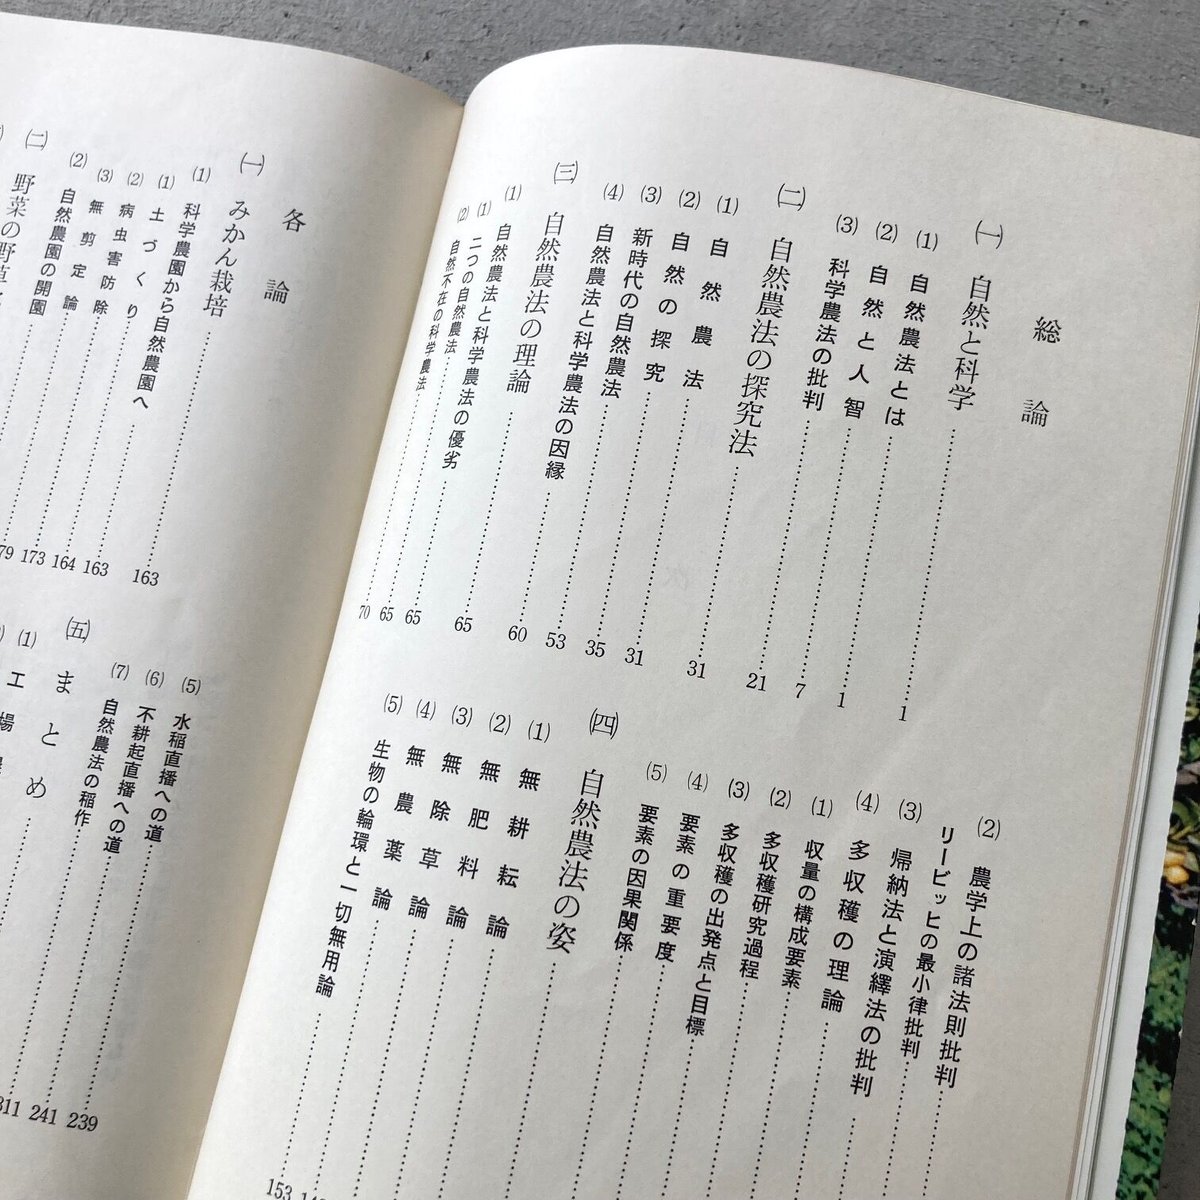 総論
㈠ 自然と科学……1
(1) 自然農法とは……1
(2) 自然と人智……7
(3) 科学農法の批判……21
㈡ 自然農法の探究法……31
(1) 自然農法……31
(2) 自然の探究……35
(3) 新時代の自然農法……53
(4) 自然農法と科学農法の因縁……60
㈢ 自然農法の理論……65
(1) 自然農法と科学農法の優劣……65
(1) 二つの自然農法……65
(2) 自然不在の科学農法……70
(2) 農学上の諸法則批判
リービッヒの最小律批判
(3) 帰納法と演繹法の批判
(4) 多収穫の理論
(1) 収量の構成要素
(2) 多収穫研究過程
(3) 多収穫の出発点と目標
(4) 要素の重要度
(5) 要素の因果関係
㈣ 自然農法の姿
(1) 無耕耘論
(2) 無肥料論
(3) 無除草論
(4) 無農薬論
(5) 生物の輪環と一切無用論……153
各論
㈠ みかん栽培……163
(1) 科学農園から自然農園へ……163
(1) 土づくり……164
(2) 病虫害防除……173
(3) 無剪定論……79
(2) 自然農園の開園
㈡ 野菜の野草
(5) 水稲直播への道……239
(6) 不耕起直播への道……241
(7) 自然農法の稲作……311
㈤ まとめ
(1) 工場